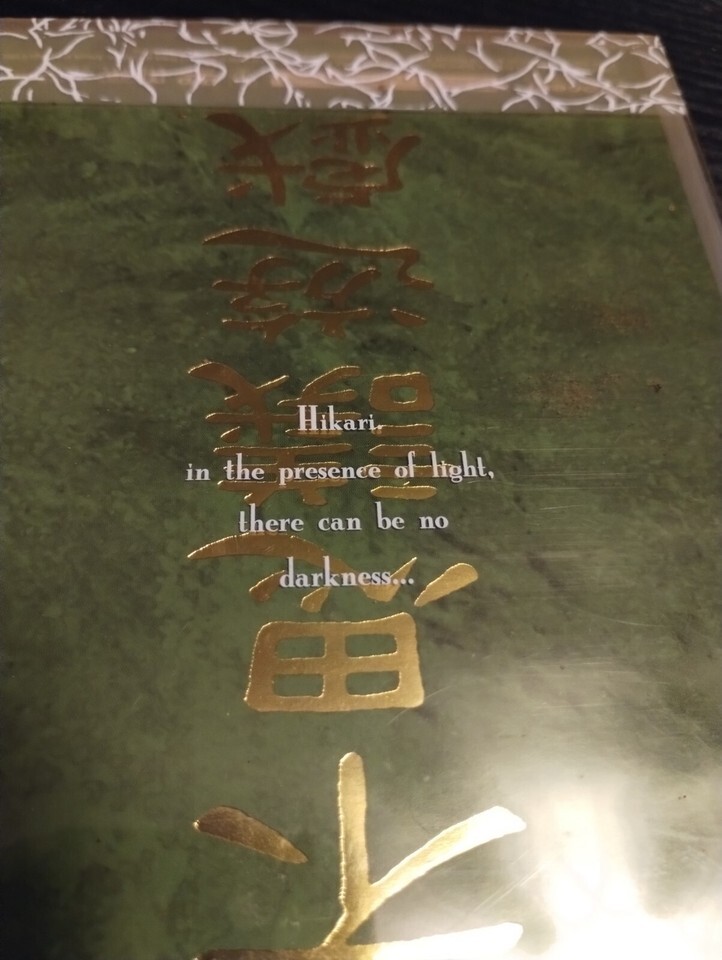 不思議遊戯
Hikari.
in the presence of light,
there can be no
darkness...